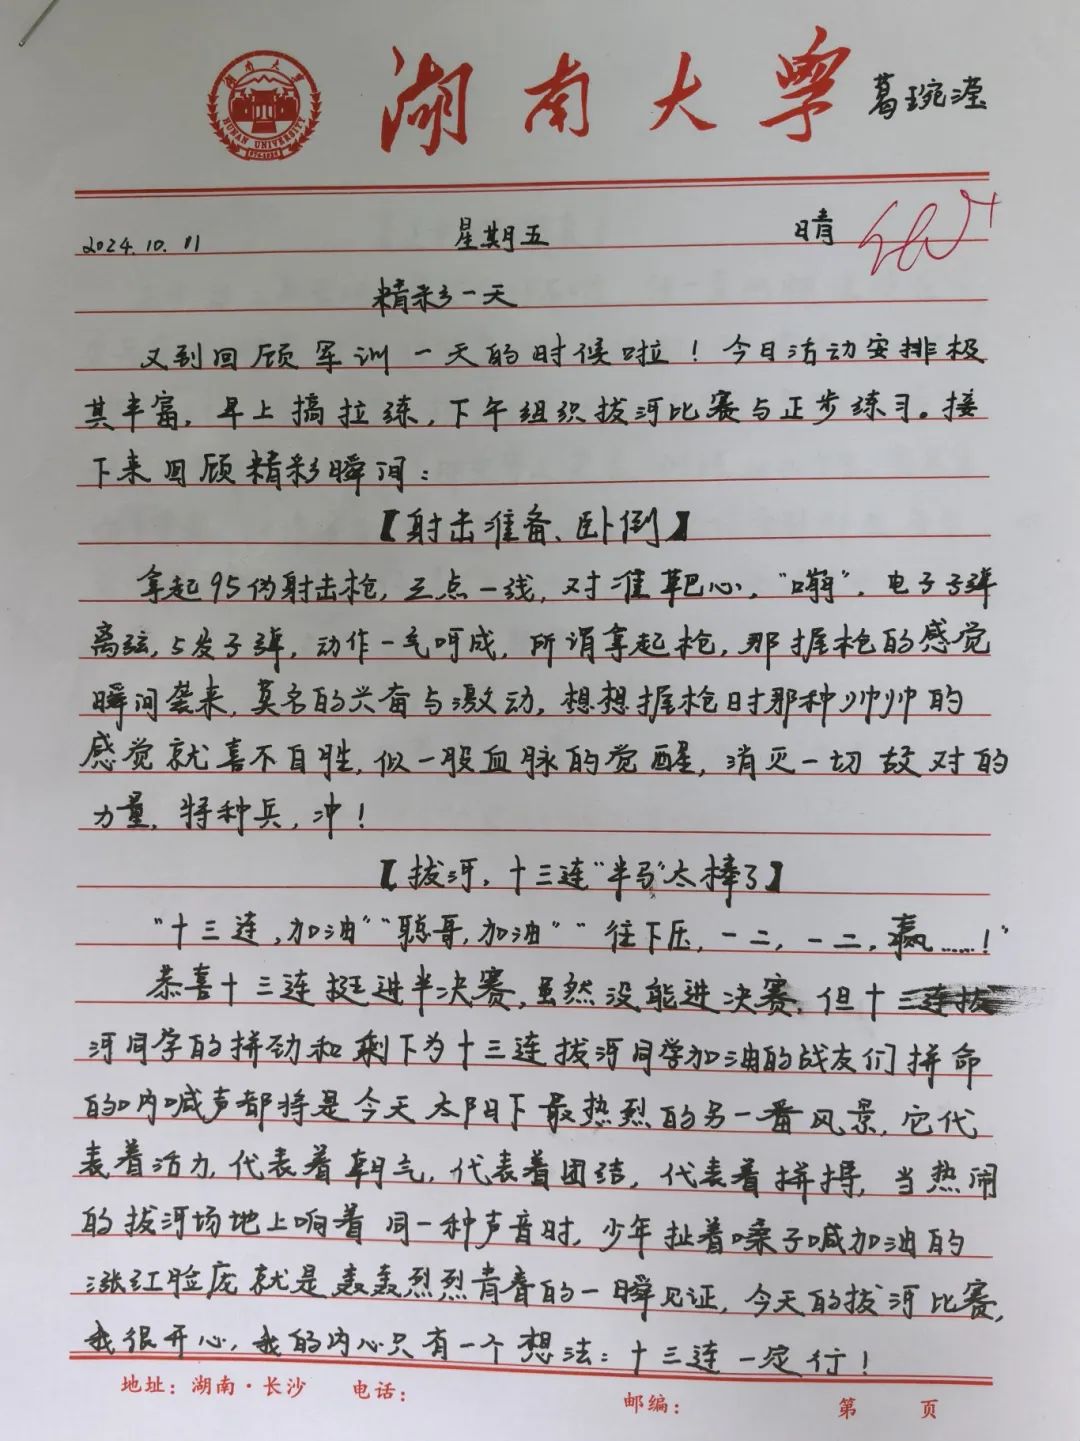 湖南大学
HUNAN UNIVERSITY
葛琬滢
2024.10.11 星期五 晴
精彩一天
又到回顾军训一天的时候啦！今日活动安排极
其丰富，早上搞拉练，下午组织拔河比赛与正步练习。接
下来回顾精彩瞬间：
【射击准备、卧倒】
拿起95伪射击枪，三点一线，对准靶心，“嘣”，电子子弹
离弦，5发子弹，动作一气呵成，所谓拿起枪，那握枪的感觉
瞬间袭来，莫名的兴奋与激动，想想握枪时那种帅帅的
感觉就喜不自胜，似一股血脉的觉醒，消灭一切敌对的
力量，特种兵，冲！
【拔河，十三连“半马”太棒了】
“十三连，加油”“聪哥，加油”“往下压，一二，一二，赢……！”
恭喜十三连挺进半决赛，虽然没能进决赛，但十三连拔
河同学的拼劲和剩下为十三连拔河同学加油的战友们拼命
的呐喊声都将是今天太阳下最热烈的另一番风景，它代
表着活力，代表着朝气，代表着团结，代表着拼搏，当热闹
的拔河场地上响着同一种声音时，少年扯着嗓子喊加油的
涨红脸庞就是轰轰烈烈青春的一瞬见证，今天的拔河比赛，
我很开心，我的内心只有一个想法：十三连一定行！
地址：湖南·长沙 电话： 邮编： 第 页